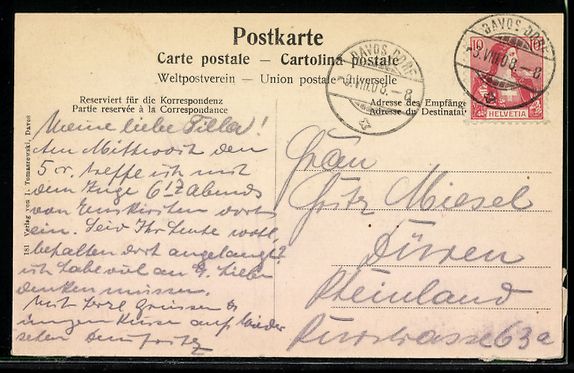 Postkarte
Carte postale – Cartolina postale
Weltpostverein – Union postale universelle
Reserviert für die Korrespondenz
Partie reservée à la Correspondance
Adresse des Empfänge
Adresse du Destinatai
DAVOS DORF
3.VIII.08.–8
DAVOS DORF
3.VIII.08.–8
10 10
HELVETIA
181 Verlag von L. Tomaszewski, Davos
Meine liebe Tilla!
Am Mittwoch den
5 cr. treffe ich mit
dem Zuge 6 17 abends
von Euskirchen dort
ein. Seid Ihr heute wohl
behalten dort angelangt?
ich habe viel an Lieber
denken müssen.
Mit herzl. Grüssen &
innigen Küssen auf Wieder
sehen Dein Fritz
Frau
Fritz Miesel
Düren
Rheinland
Kurstrasse 63a